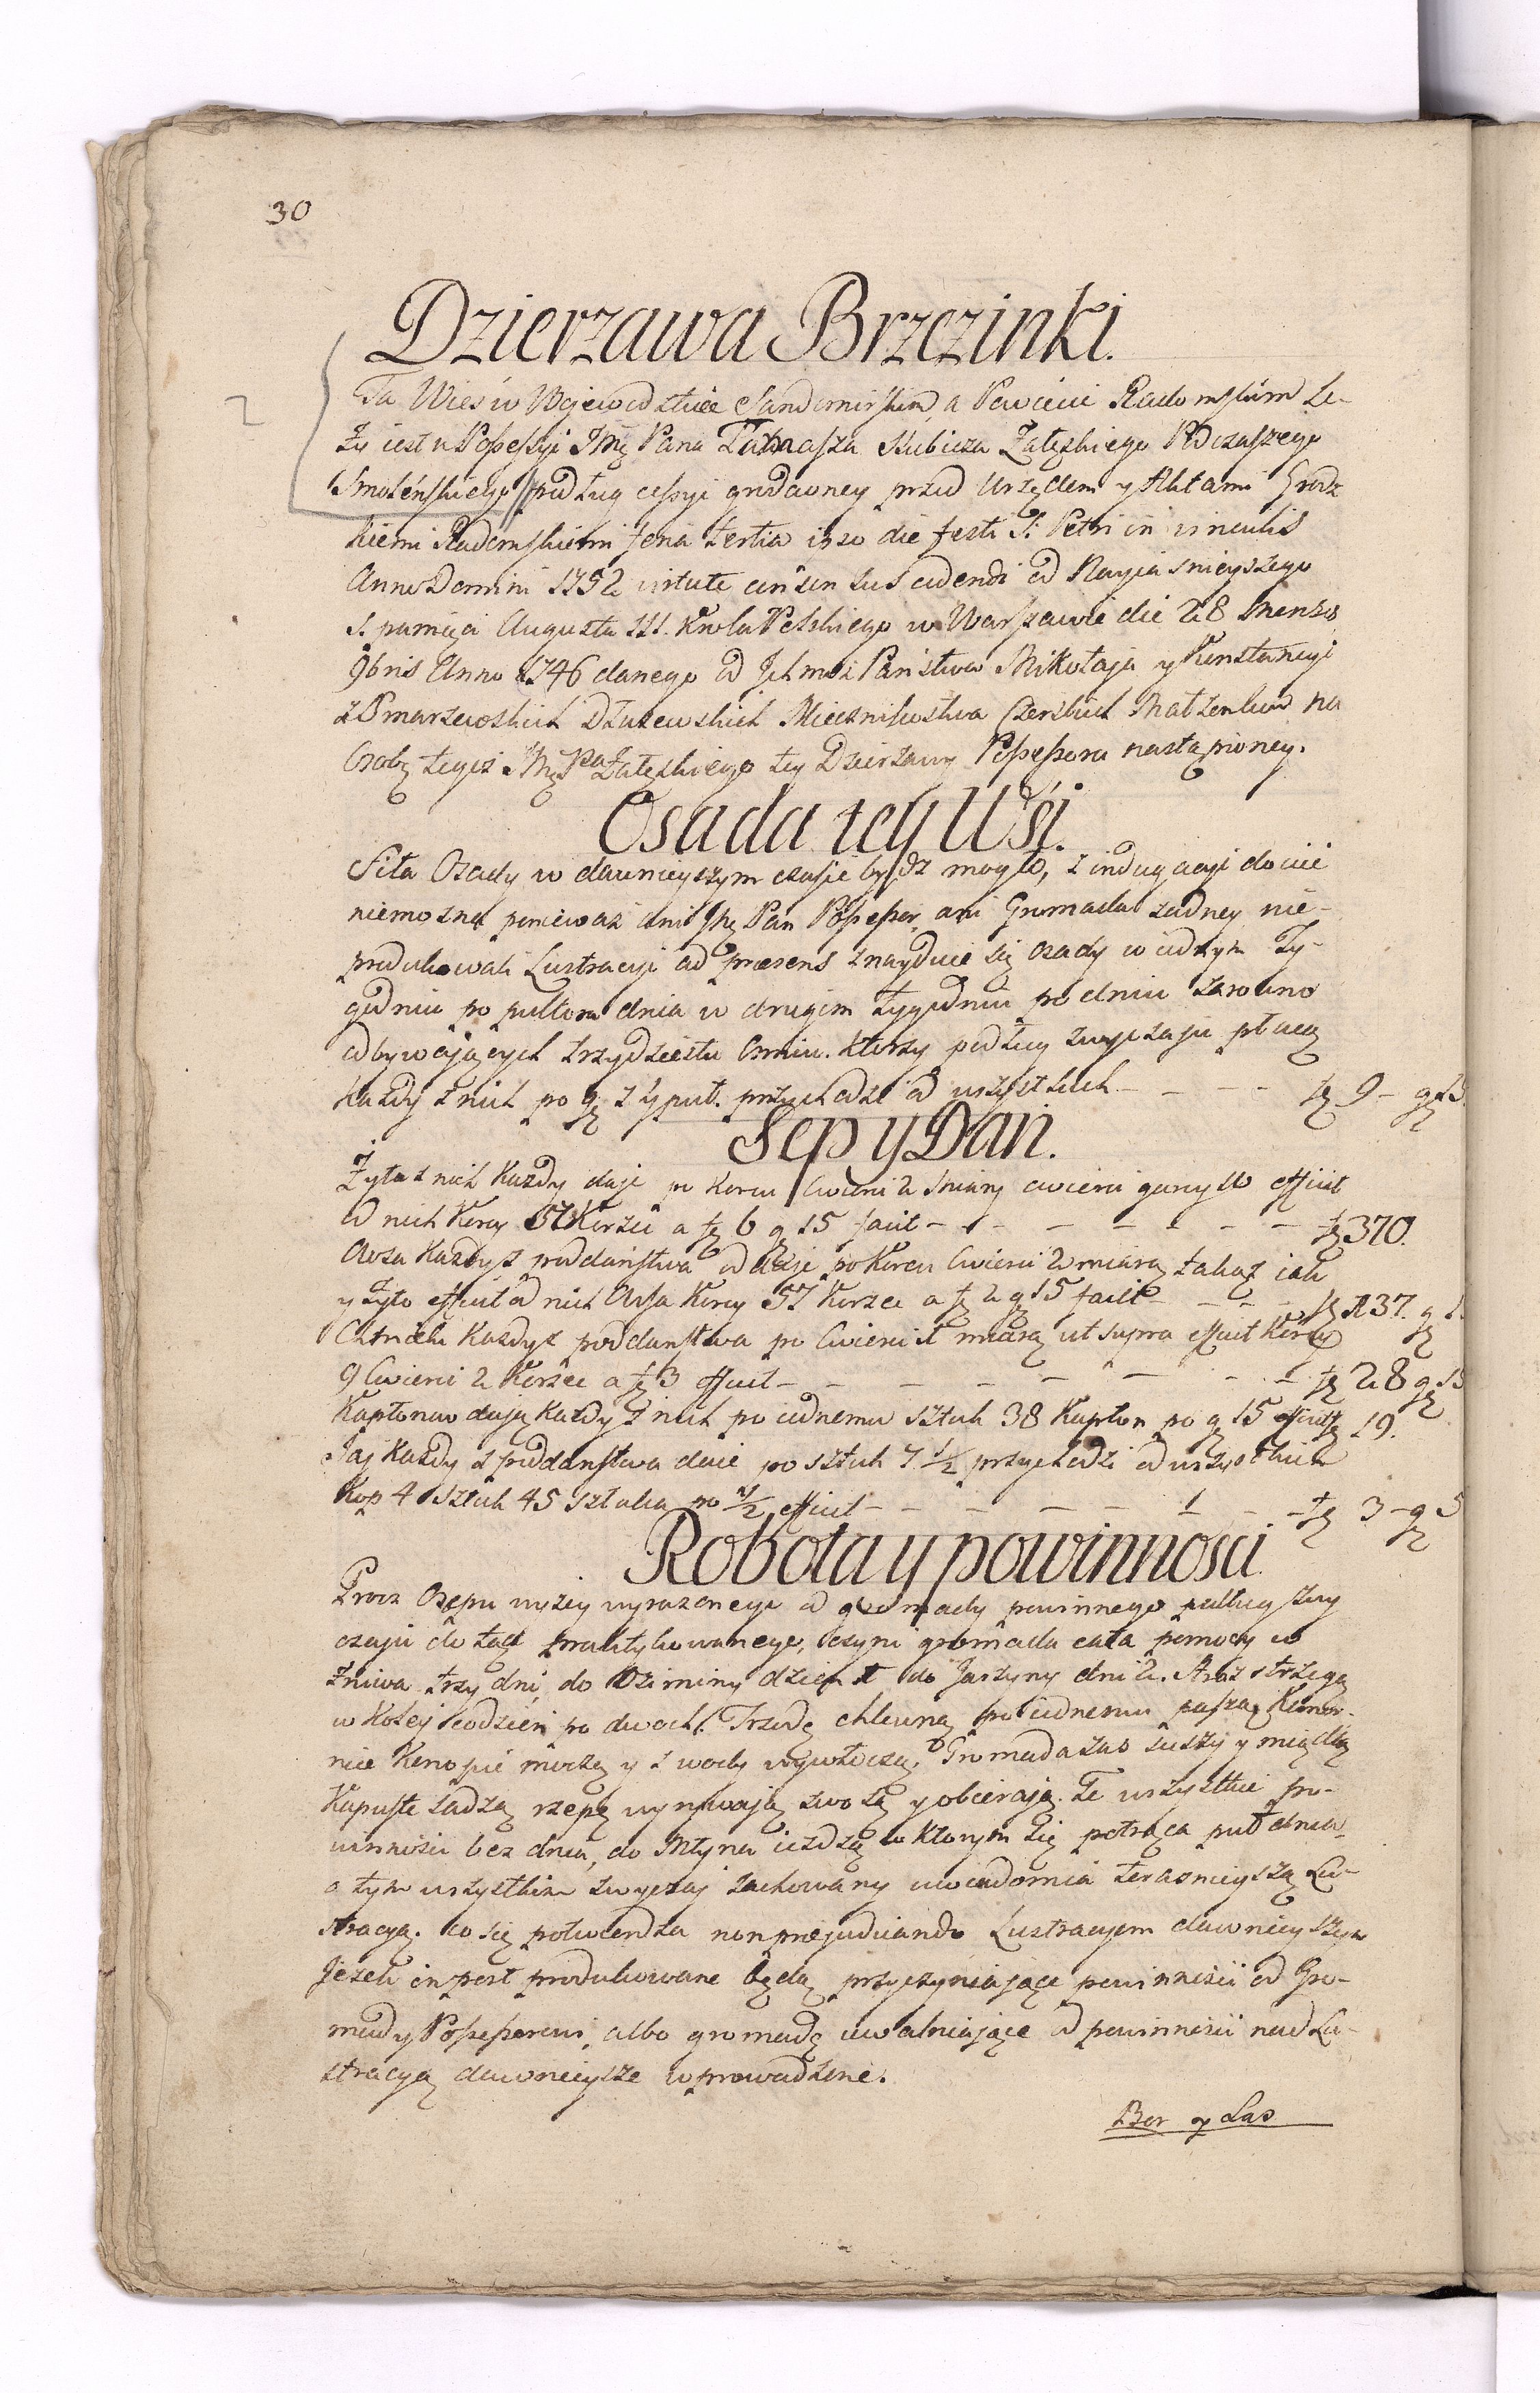 30
Dzierzawa Brzezinki.
Ta Wieś w Wojewodztwie Sandomirskim, a Powiecie Radomskim Le-
ży iest w Possessyi Jmę Pana Tomasza Skubicza Załęskiego Podczaszego
Smoleńskiego podług cessyi grodowney przed Urzędem y Aktami Grodz
kiemi Radomskiemi feria tertia ipso die festi S. Petri in vinculis
Anno Domini 1752 virtute consensus cedendi od Nayiasnieyszego
S. pamięci Augusta III. Krola Polskiego w Warszawie die 28 Mensis
9bris Anno 1746 danego od Jchmoś Państwa Mikołaja y Konstancyi
z Pomarzewskich Dłużewskich Miecznikostwa Czerskich Małżonkow na
Osobę tegoż Jmę Pa Załęskiego tey Dzierżawy Possessora nastąpioney.
Osada tey Wśi.
Siła Osady w dawnieyszym czasie bydz mogło, z indagacyi dociec
niemożna ponieważ ani Jmę Pan Possessor, ani Gromada żadney nie-
produkowali Lustracyi ad praesens znayduie się Osady w iednym Ty-
godniu po pułtora dnia w drugim tygodniu po dniu zarowno
odbywających trzydziestu Ośmiu. ktorzy podług zwyczaju płacą
każdy z nich po g 7 ½ put. przychodzi od wszystkich - - - - fl 9 - g 15
Sep y Dań.
Żyta z nich każdy daje po Korcu Cwierci 2 miary cwierci garcy efficit
od nich Korcy 57 Korzec a fl 6 g 15 facit - - - - - - - fl 370.
Owsa Każdy z poddaństwa oddaje po Korcu Cwierci 2 miarą takąż iak
y żyto efficit od nich Owsa Korcy 57 Korzec a fl 2 g 15 facit - - - fl 137. g
Chmielu Każdy z poddaństwa po Cwierci 1 miarą ut supra efficit Korcy
9 Cwierci 2 Korzec a fl 3 efficit - - - - - - - - fl 28 g 15
Kapłonow dają Każdy z nich po iednemu sztuk 38 Kapłon po g 15 efficit fl 19.
Jaj Każdy z poddaństwa daie po sztuk 7 ½ przychodzi od wszystkich
Kop 4 sztuk 45 sztuka po ½ efficit - - - - - - - fl 3 - g 5
Robota y powinnosci
Procz Osepu wyżey wyrazonego od gromady powinnego podług zwy
czaju do tąd praktykowanego, czyni gromada cała pomocy w
żniwa trzy dni, do Oziminy dzień 1 do Jarzyny dni 2. Stroż strzegą
w koley codzień po dwoch. Trzodę chlewną po iednemu paszą, Komor-
nice Konopie moczą y z wody wywłoczą, Gromada zas suszy y międlą
Kapuste sadzą rzepę wyrywają zwożą y obcierają. Te wszystkie po-
winnosci bez dnia, do Młyna ieżdżą w ktorym się potrąca puł dnia
o tym wszystkim zwyczaj zachowany uwiadomia terasnieyszą Lu-
stracyą. co się potwierdza non prejudicando Lustracyom dawnieyszym
Jezeli in post produkowane będą przyczyniające powinności od Gro-
mady Possessorowi, albo gromadę uwalniające od powinności nad Lu-
stracyą dawnieysze wprowadzone.
Bor y Las